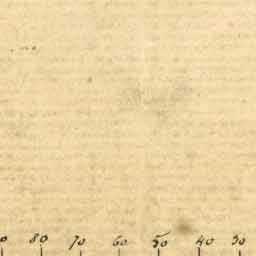 0 80 70 60 50 40 30